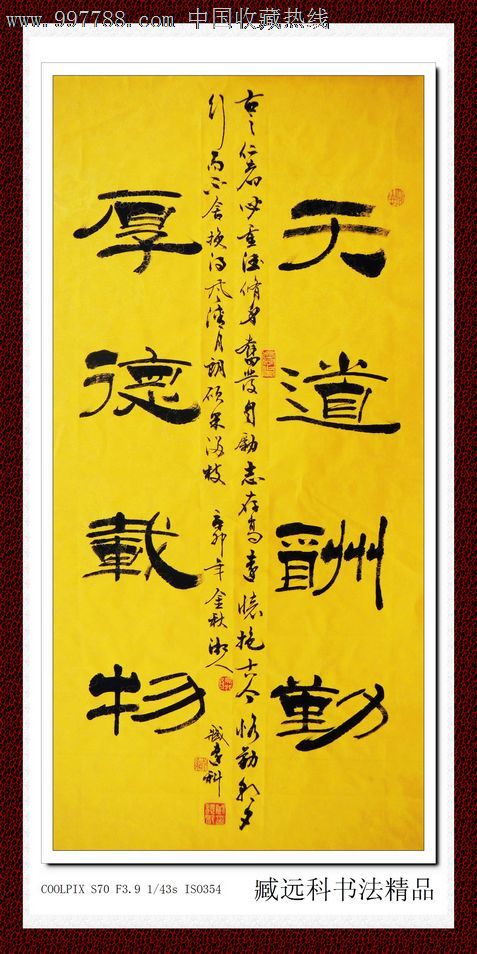 www.997788.com 中国收藏热线
天道酬勤
古之仁者必重德脩身奮發自勵志存高遠懷抱古今恪勤朝夕
行而不舍换得风清月朗硕果满枝 辛卯年金秋湘人
臧遠科
厚德載物
COOLPIX S70 F3.9 1/43s ISO354
臧远科书法精品